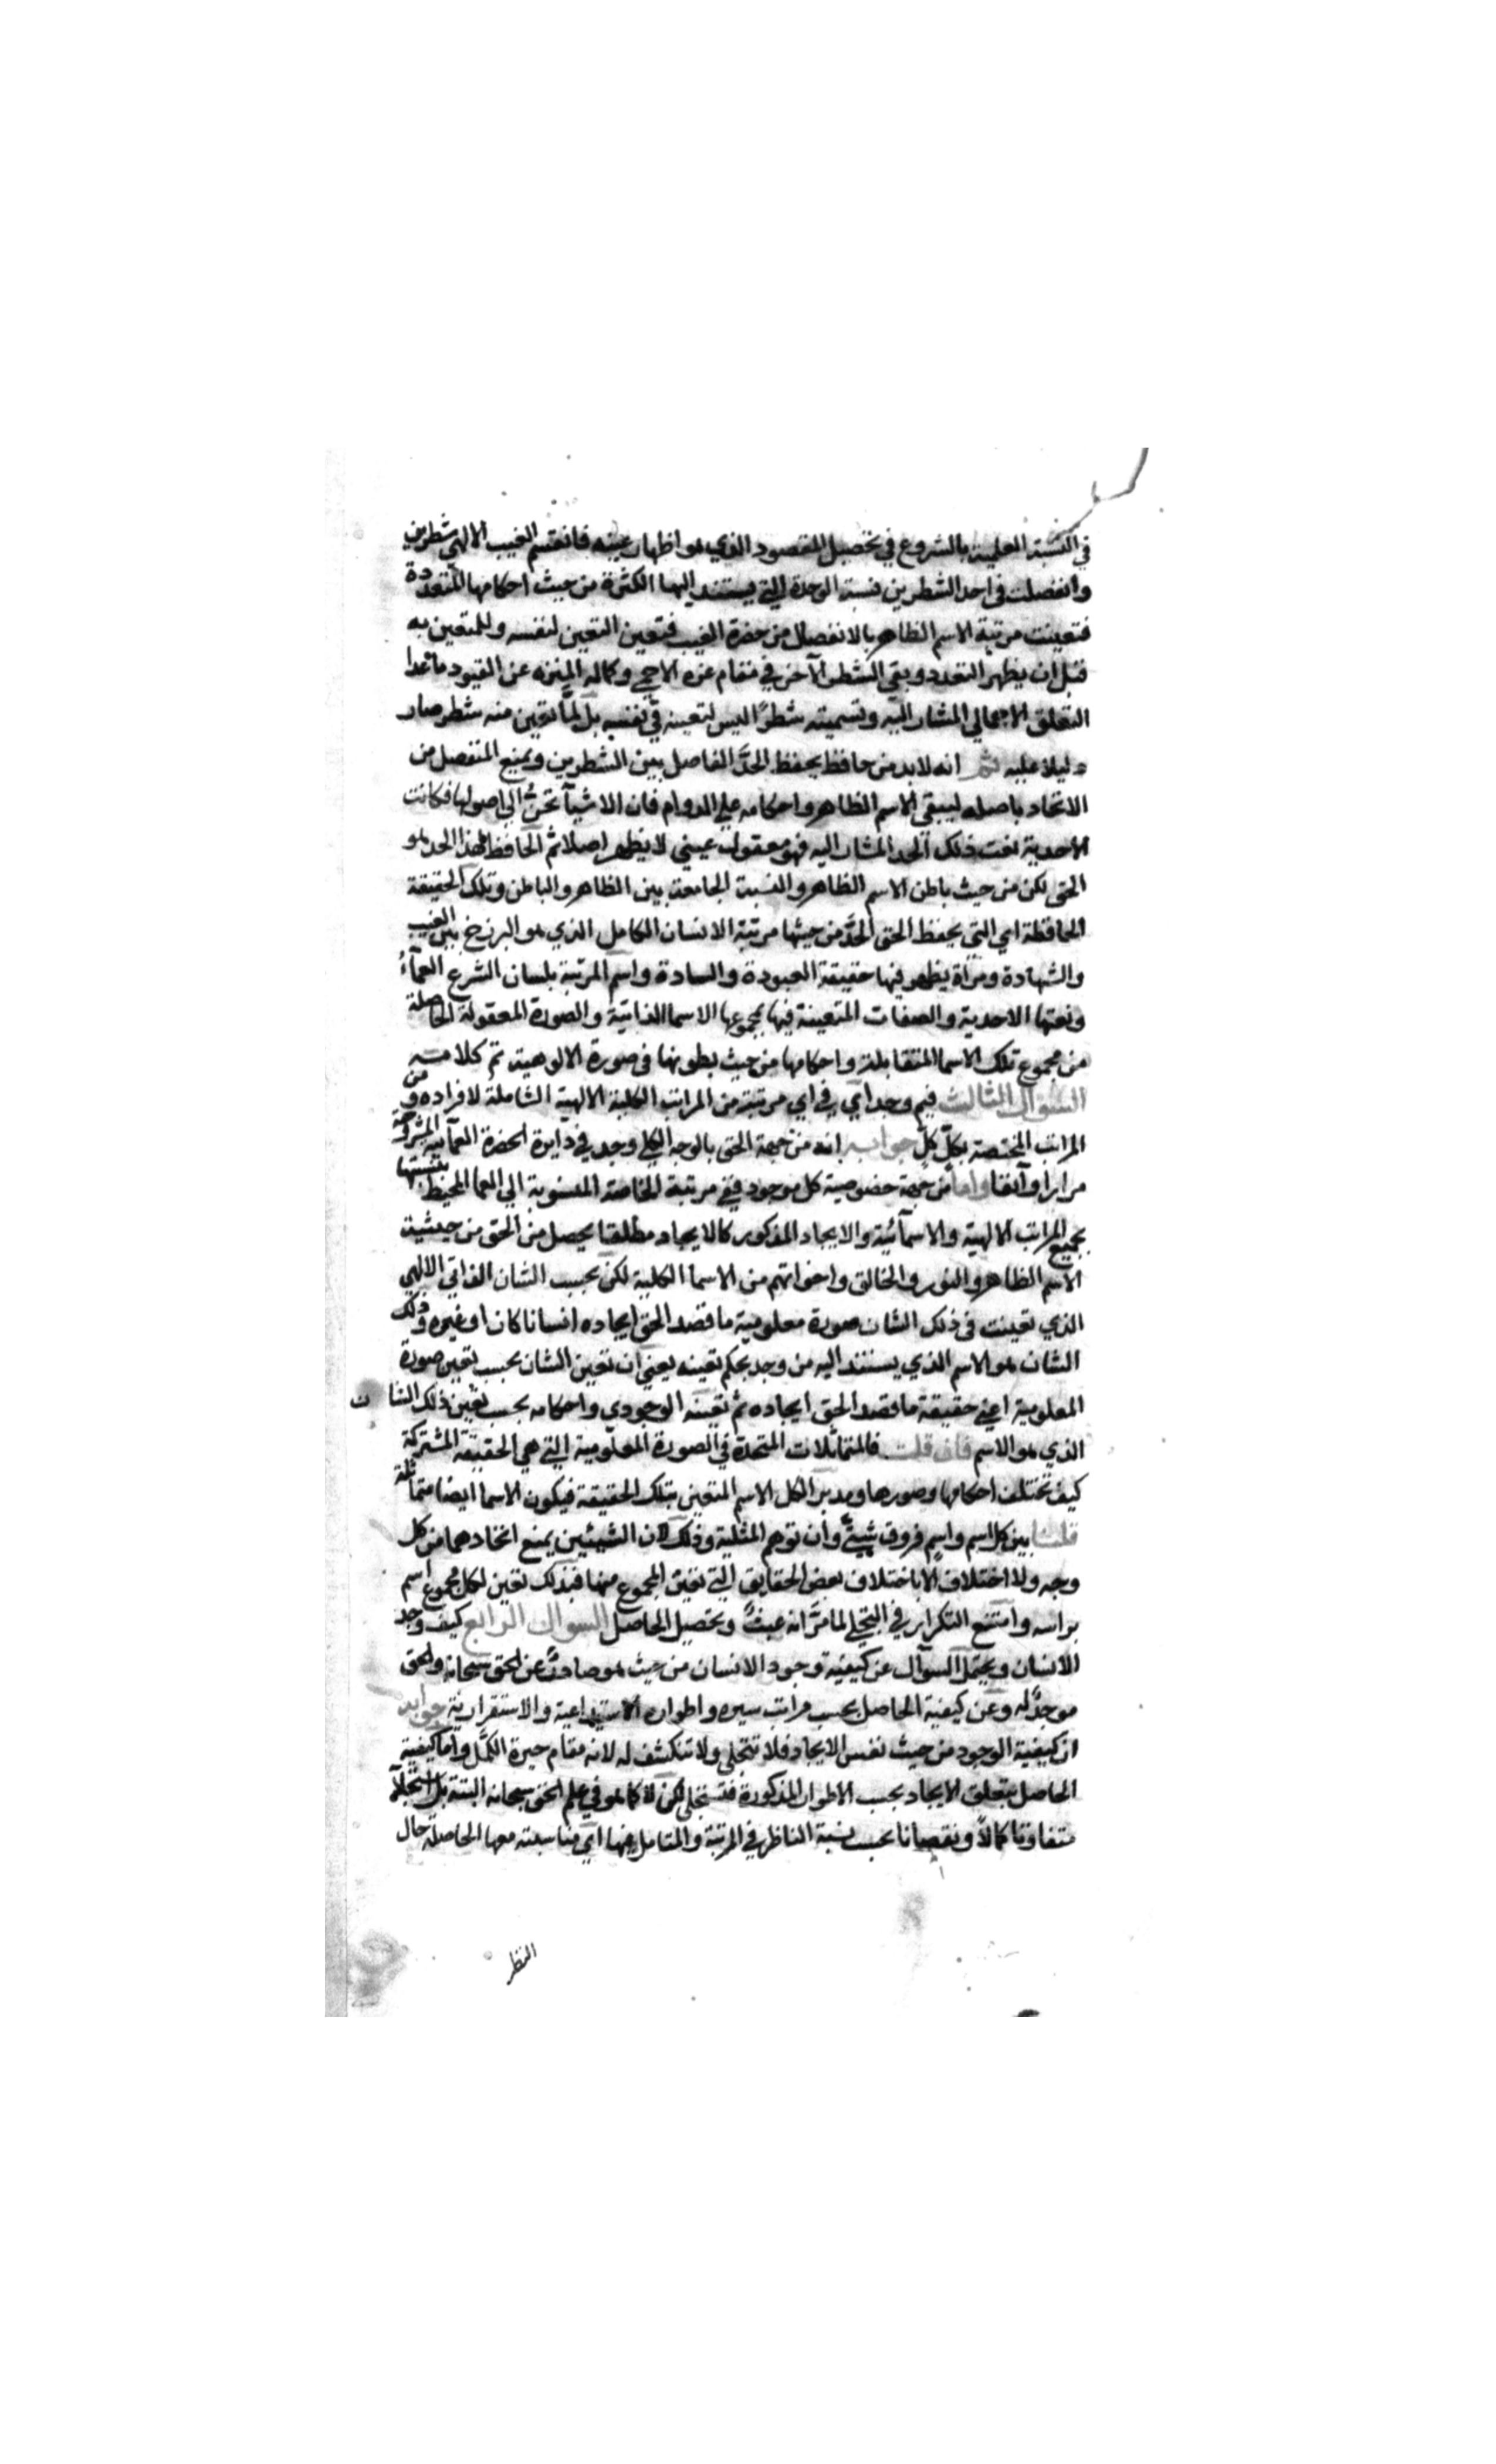 في النسبة العلمية بالشروع في تحصيل المقصود الذي هو اظهار عينه فانقسم الغيب الالهي شطرين
وانفصلت في احد الشطرين نسبة الوحدة التي يستند اليها الكثرة من حيث احكامها المتعددة
فتعينت مرتبة الاسم الظاهر بالانفصال من حضرة الغيب فتعين التعين لنفسه وللمتعين به
قبل ان يظهر التعدد وبقي الشطر الآخر في مقام عزه الاحمي وكماله المنزه عن القيود ما عدا
التعلق الاجمالي المشار اليه وتسميته شطرًا ليس لتعينه في نفسه بل لمّا تعين منه شطر صار
دليلا عليه ثم انه لابد من حافظ يحفظ الحدَّ الفاصل بين الشطرين ويمنع المنفصل من
الاتحاد باصله ليبقي الاسم الظاهر واحكامه علي الدوام فان الاشيآ تحنُّ الي اصولها فكانت
الاحدية نعت ذلك الحد المشار اليه فهو معقول عيني لا يظهر اصلا ثم الحافظ لهذا الحد هو
الحق لكن من حيث باطن الاسم الظاهر والنسبة الجامعة بين الظاهر والباطن وتلك الحقيقة
الحافظة اي التي يحفظ الحق الحدَّ من حيثها مرتبة الانسان الكامل الذي هو البرزخ بين الغيب
والشهادة ومرآة يظهر فيها حقيقة العبودة والسادة واسم المرتبة بلسان الشرع العمآءُ
ونعتها الاحدية والصفات المتعينة فيها بمجموعها الاسما الذاتية والصورة المعقولة الحاصلة
من مجموع تلك الاسما المتقابلة واحكامها من حيث بطونها في صورة الالوهية تم كلامه
السؤال الثالث فيم وجد اي في اي مرتبة من المراتب الكلية الالهية الشاملة لافراده و من
المراتب المختصة بكلّ كلّ جوابه انه من جهة الحق بالوجه الكلي وجد في دايرة الحضرة العمآئيه المشروحة
مرارا وآنفا واما من جهة خصوصية كل موجود ففي مرتبة الخاصة المنسوبة الي العما المحيط بنسبتها
بجميع المراتب الالهية والاسمآئية والايجاد المذكور كالايجاد مطلقا يحصل من الحق من حيثية
الاسم الظاهر والنور والخالق واخواتهم من الاسما الكلية لكن بحسب الشان الذاتي الالهي
الذي تعينت في ذلك الشان صورة معلومية ما قصد الحق ايجاده انسانا كان او غيره وذلك
الشان هو الاسم الذي يستند اليه من وجد بحكم تعينه يعني ان تعين الشان بحسب تعين صورة
المعلومية اعني حقيقة ما قصد الحق ايجاده ثم تعينه الوجودي واحكامه بحسب تعين ذلك الشان
الذي هو الاسم فان قلت فالمتماثلات المتحدة في الصورة المعلومية التي هي الحقيقة المشتركة
كيف تختلف احكامها وصورها ومدبر الكل الاسم المتعين بتلك الحقيقة فيكون الاسما ايضا متماثلة
قلنا بين كل اسم واسم فروق شتي وان توهم المثلية وذلك لان الشيئين يمنع اتحادهما من كل
وجه ولا اختلاف الا باختلاف بعض الحقايق التي تعين المجموع منها فبذلك تعين لكل مجموع اسم
براسه وامتنع التكرار في التجلي لما مرَّ انه عبثٌ وتحصيل الحاصل السوال الرابع كيف وجد
الانسان ويحتمل السوآل عن كيفية وجود الانسان من حيث هو صادرٌ عن الحق سبحانه والحق
موجدٌ له وعن كيفية الحاصل بحسب مراتب سيره واطواره الاستيداعية والاستقرارية جوابه
ان كيفية الوجود من حيث نفس الايجاد فلا تتجلى ولا تنكشف له لانه مقام حيرة الكمَّل واما كيفية
الحاصل بتعلق الايجاد بحسب الاطوار المذكورة فتستجلي لكن لا كما هو في علم الحق سبحانه البتة بل استجلآ
متفاوتا كمالاً ونقصانا بحسب نسبة الناظر في المرتبة والمتامل فيها اي مناسبته معها الحاصلة حال
النظر